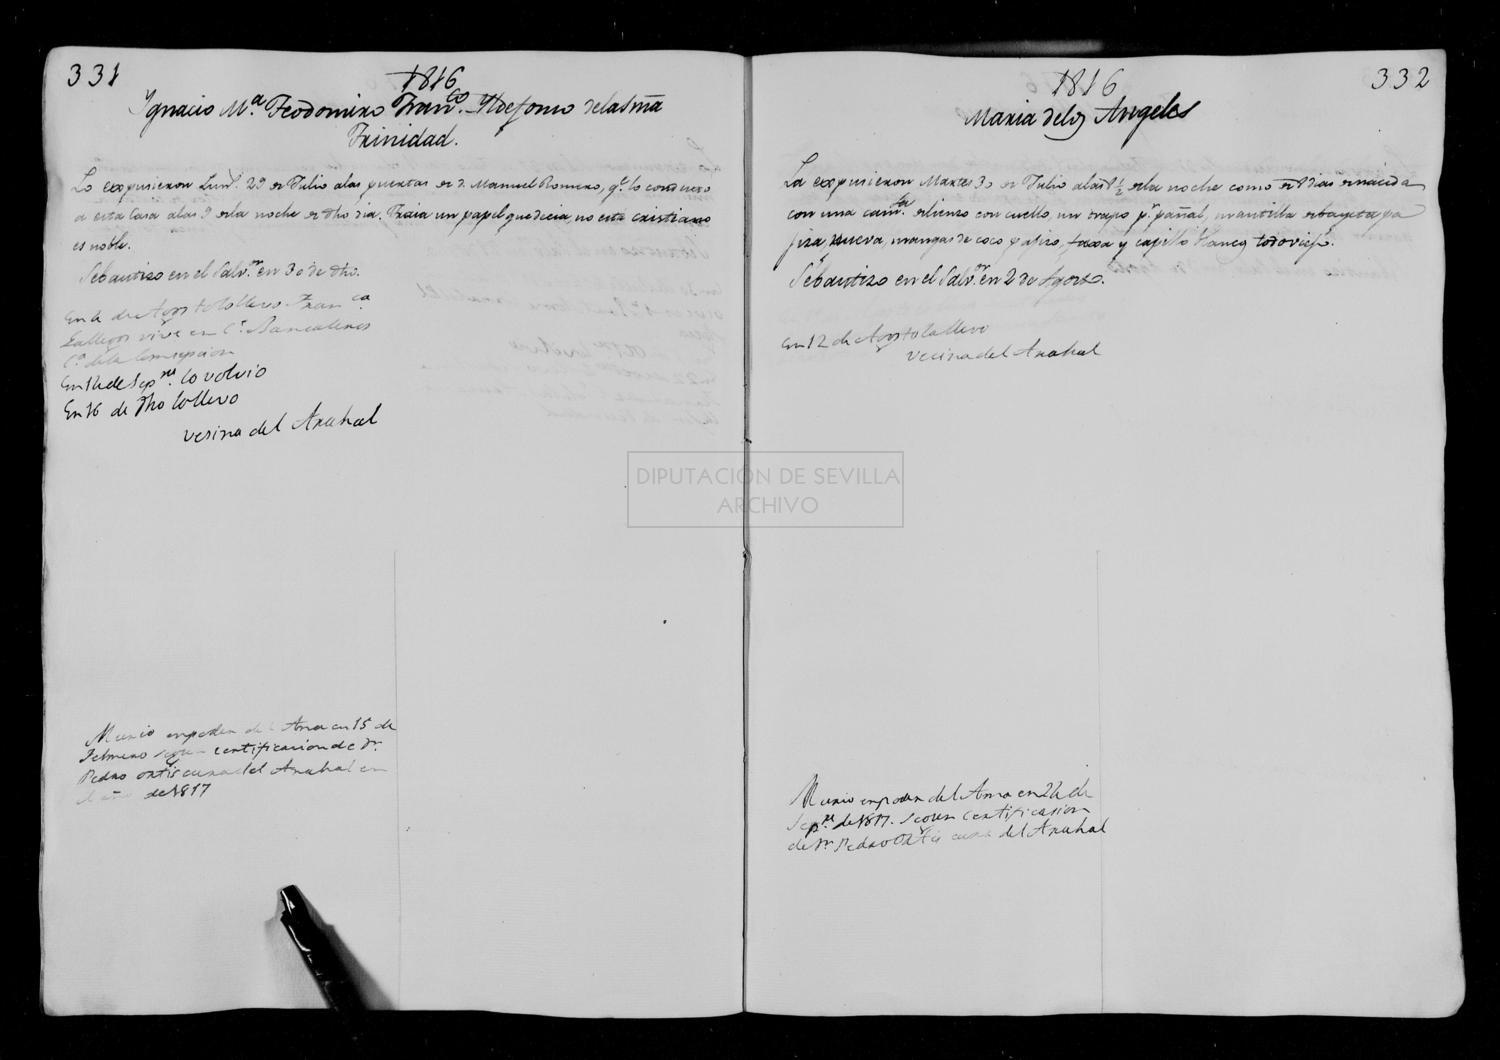 331
1816
Ignacio Mª. Teodomiro Franco. Yldefonso delasma
Trinidad.
Lo expusieron Lun. 29 de Julio alas puertas de d. Manuel Romero, qe. lo conduxo
a esta Casa alas 9 dela noche de dho dia. Traia un papel que decia, no está cristiano
es noble.
Se bautizo en el Salvr. en 30 de dho.
En 4 de Agosto lo llevo Franca
Gallegos vive en Cl. Bancaleros
Cl. de la Concepcion
En 14 de Sepre. lo volvio
En 16 de dho lo llevo
vesina del Arahal
Murio en poder del Ama en 15 de
Febrero segun certificacion de Dn.
Pedro Ortis cura del Arahal en
el año de 1817
1816
332
Maria delos Angeles
La expusieron Martes 30 de Julio alas 8 1/2 dela noche como de 8 dias de nacida
con una camta. de lienzo con cuello, un trapo pr. pañal, mantilla de bayeta pa
jiza nueva, mangas de coco pajizo, faxa y capillo blancos todo viejo.
Se bautizo en el Salvr. en 2 de Agosto.
En 12 de Agosto la llevo
vecina del Arahal
Murio en poder del Ama en 24 de
Sepre. de 1817. segun certificasion
de Dn. Pedro Ortis cura del Arahal
DIPUTACIÓN DE SEVILLA
ARCHIVO